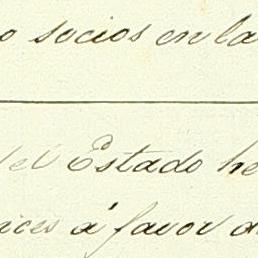 o socios en la
del Estado he
ices á favor d